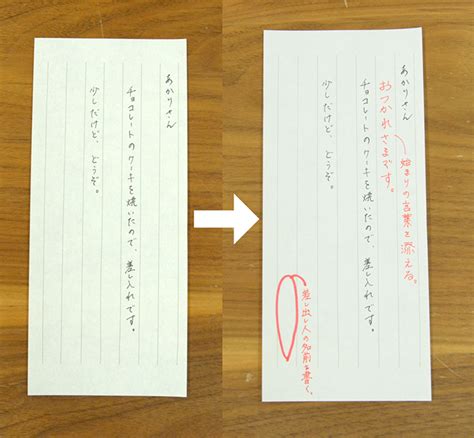 あかりさん
チョコレートのケーキを焼いたので、差し入れです。
少しだけど、どうぞ。
あかりさん
おつかれさまです。
始まりの言葉を添える。
チョコレートのケーキを焼いたので、差し入れです。
少しだけど、どうぞ。
差し出し人の名前を書く。